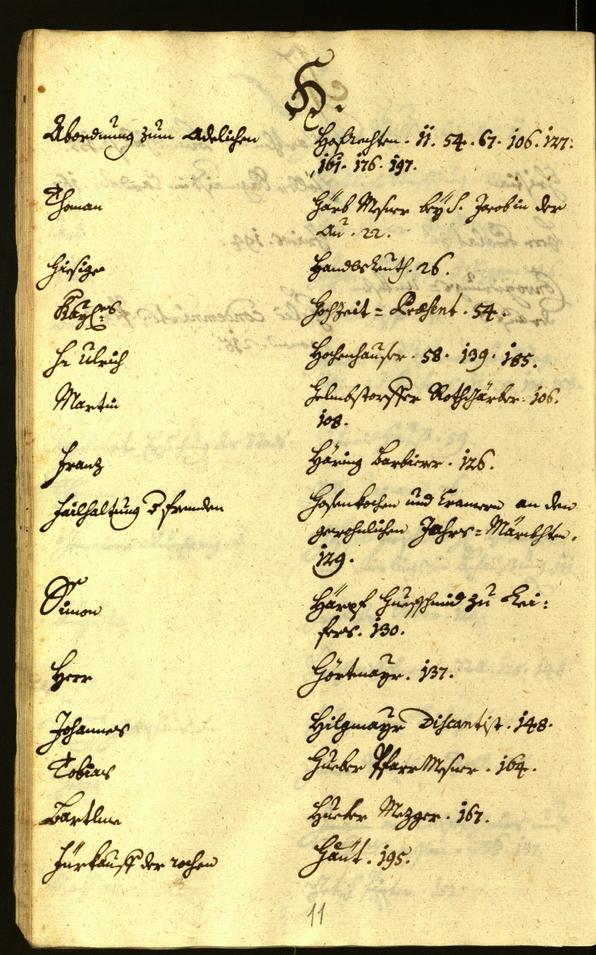 H.
Abordnung zum Adelichen Hofrechten. 11. 54. 67. 106. 127.
161. 176. 197.
Thoman Härb Mesner bey S. Jacob in der
Au. 22.
Hiesige Handlsleuth. 26.
Hochzeit = Præsent. 54.
Hr Ulrich Hochenhauser. 58. 139. 185.
Martin Helmbstorffer Rothgärber. 106.
108.
Franz Häring Barbierer. 126.
Failhaltung d. fremden Hosenkochen und Cramern an den
gewohnlichen Jahrs=Märckhten.
129.
Simon Härpf Huefschmid zu Lei=
fers. 130.
Herr Hörtmayr. 137.
Johannes Hilgmayr Discantist. 148.
Tobias Hueber Pfarr Mesner. 164.
Bartlme Hueber Mezger. 167.
Fürkauff der rochen Häut. 195.
11